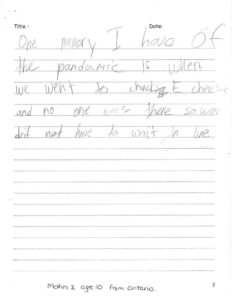 Title: Date:
One memory I have of
the pandamic is when
we went to chuck E cheese
and no one was there so we
did not have to wait in line
age 10 from Ontario.
3